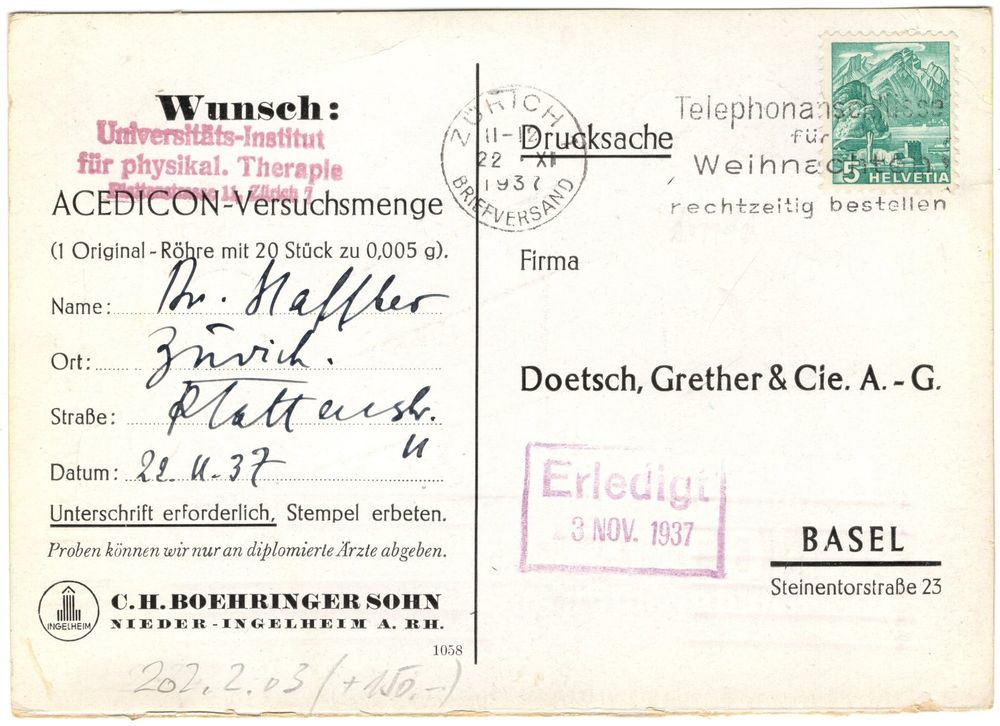 Wunsch:
Universitäts-Institut
für physikal. Therapie
Plattenstrasse 11, Zürich 7
ACEDICON-Versuchsmenge
(1 Original-Röhre mit 20 Stück zu 0,005 g).
Name: Dr.
Ort: Zürich.
Straße: Plattenstr.
11
Datum: 22. 11. 37
Unterschrift erforderlich, Stempel erbeten.
Proben können wir nur an diplomierte Ärzte abgeben.
INGELHEIM
C. H. BOEHRINGER SOHN
NIEDER-INGELHEIM A. RH.
1058
202.2.03 (+150.-)
ZÜRICH
11-12
22 XI
1937
BRIEFVERSAND
Drucksache
Telephonanschlüsse
für
Weihnachten
rechtzeitig bestellen
5 HELVETIA
Firma
Doetsch, Grether & Cie. A.-G.
Erledigt
3 NOV. 1937
BASEL
Steinentorstraße 23